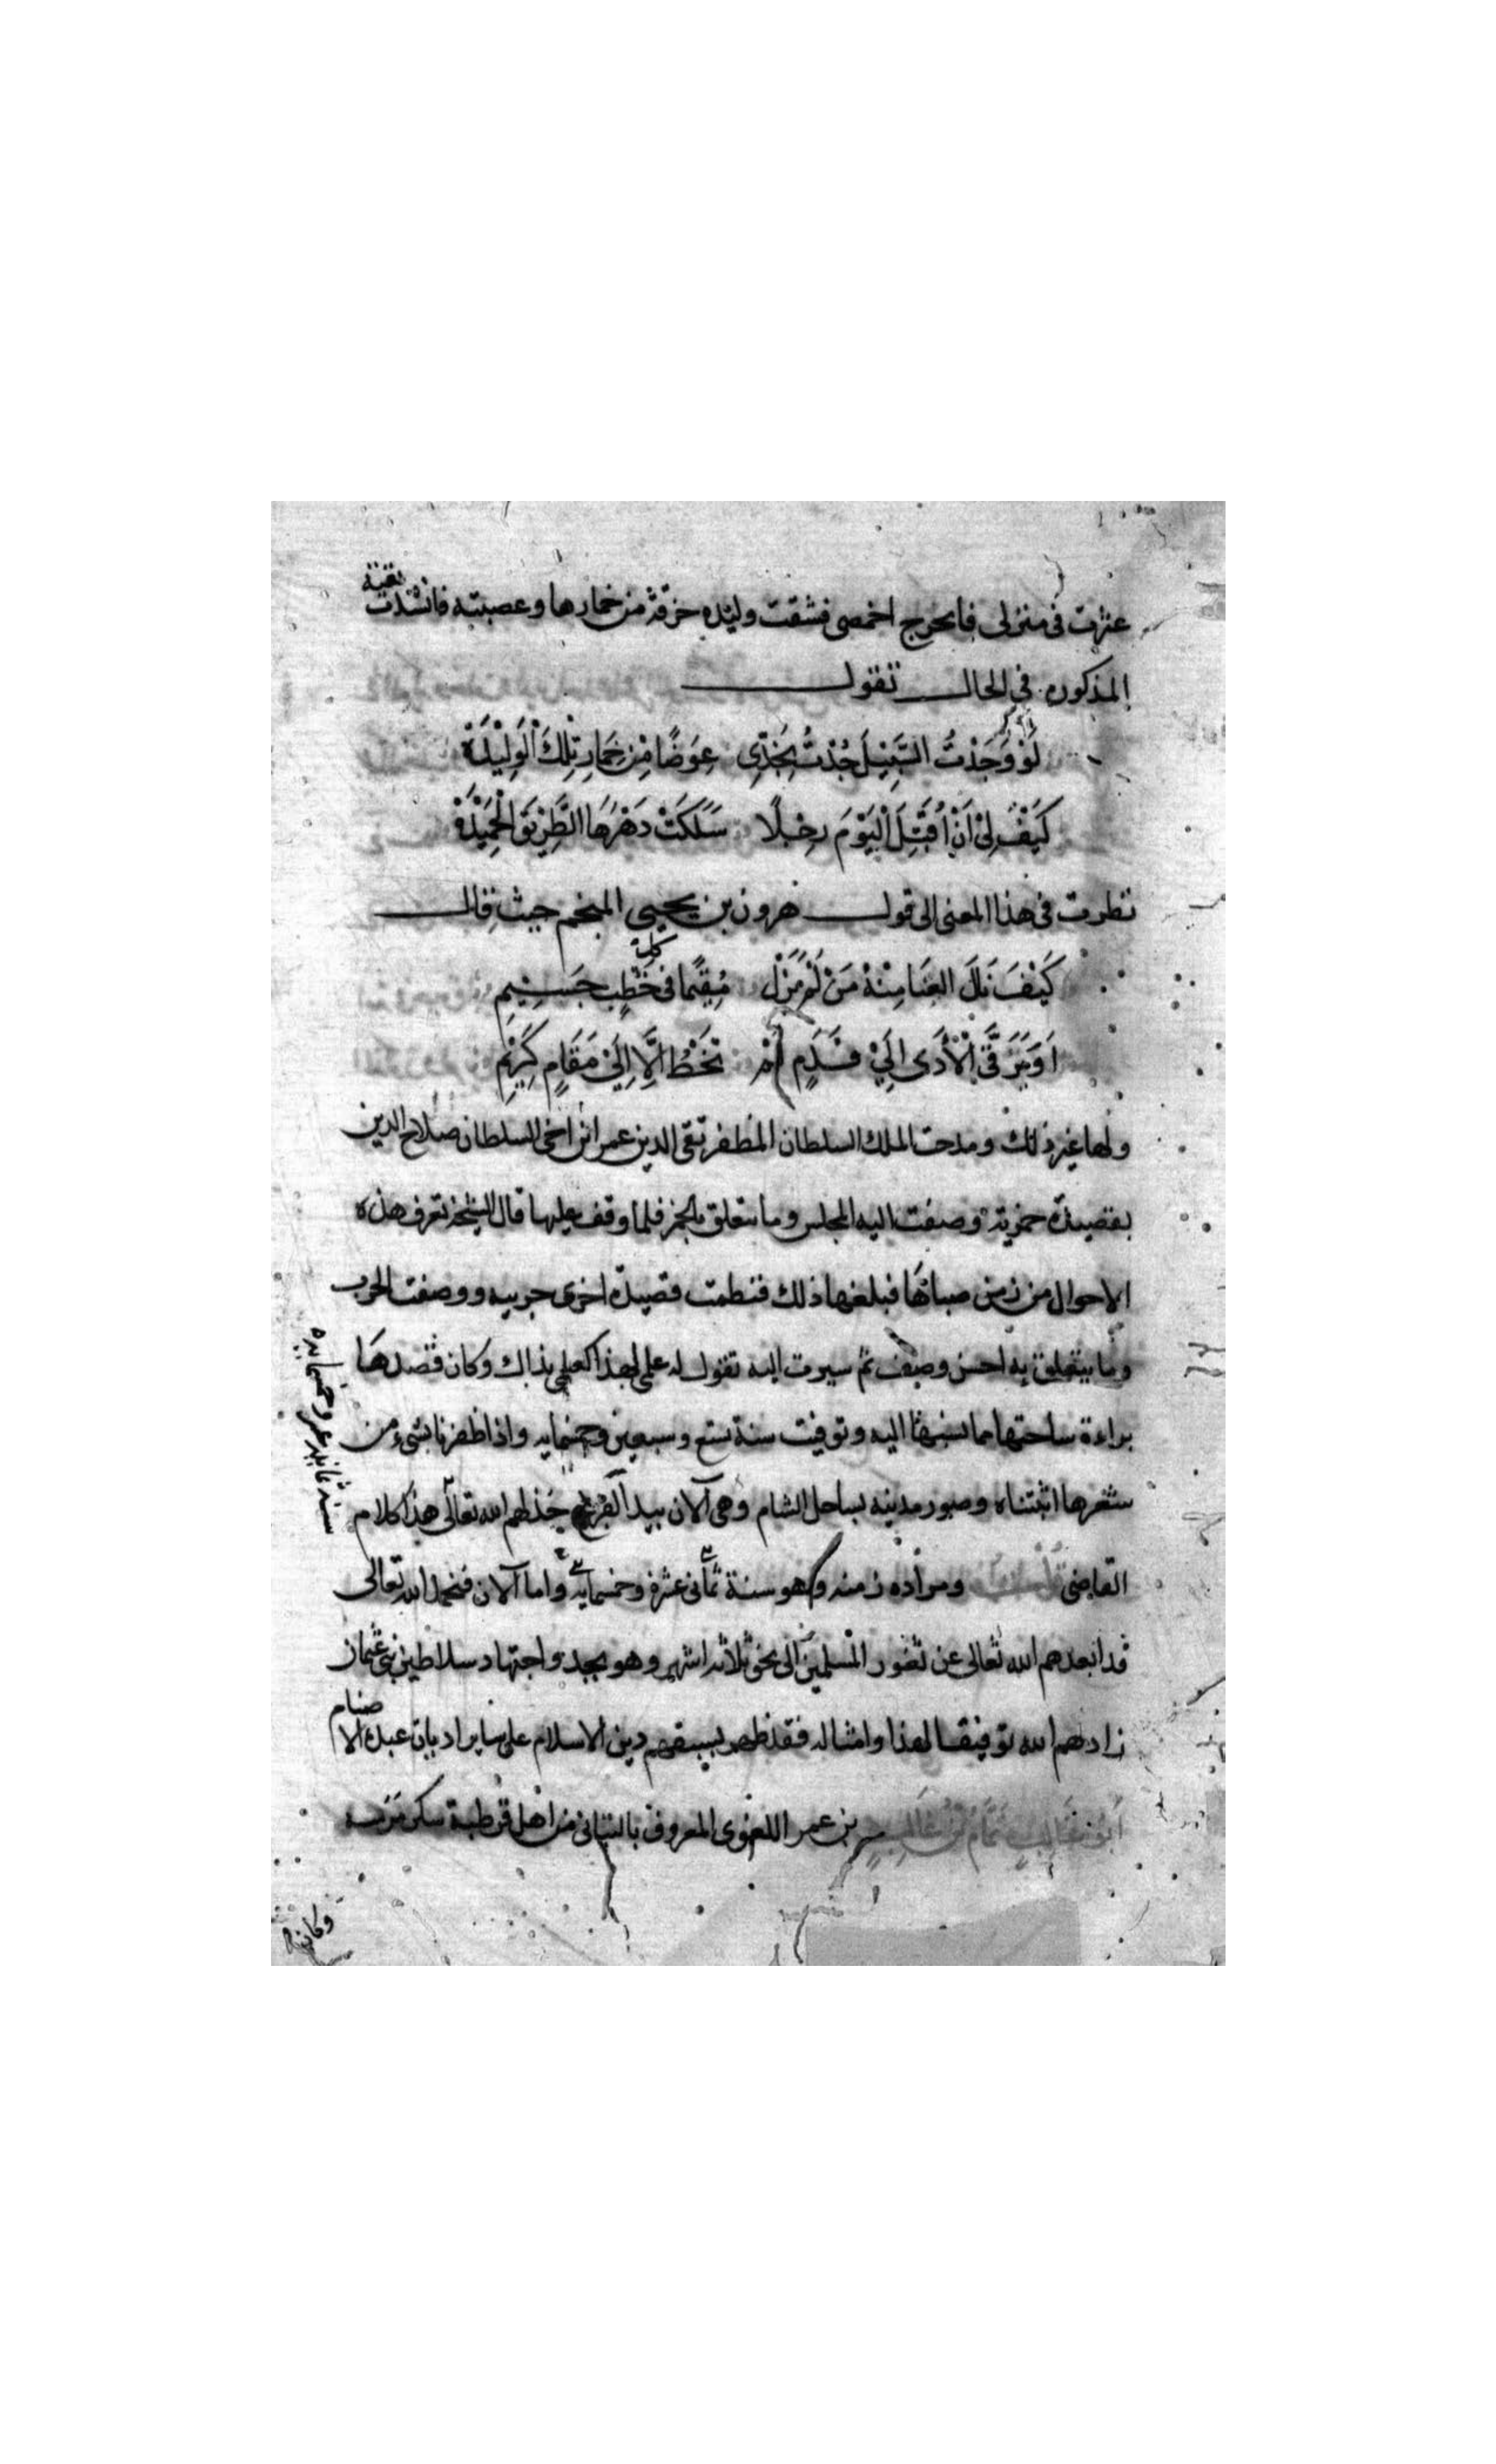 عثرت فى منزلى فانجرح اخمصى فشقت وليده خرقة من خمارها وعصبته فانشدت تقية
المذكوره فى الحال تقول
لَوْ وَجَدْتُ السَّبِيْلَ جُدْتُ بِخَدِّى عِوَضًا مِنْ خِمَارِ تِلْكَ الْوَلِيْدَةْ
كَيْفَ لِىْ اَنْ اُقَبِّلَ الْيَوْمَ رِجْلًا سَلَكَتْ دَهْرَهَا الطَّرِيْقَ الْحَمِيْدَةْ
نظرت فى هذا المعنى الى قول هرون بن يحيى المنجم حيث قال
كَيْفَ نَالَ العِثَارُ مَنْ لَمْ يَزَلْ مُقِيْمًا فى كل خَطْبٍ جَسِيْمٍ
اَوْ يَرَقَّى الْأَذَى اِلَىْ قَدَمٍ لَمْ تَخْطُ اِلَّا اِلَىْ مَقَامٍ كَرِيْمٍ
ولها غير ذلك ومدحت الملك السلطان المظفر تقى الدين عمر ابن اخى السلطان صلاح الدين
بقصيدة خمرية وصفت اليه المجلس وما يتعلق بالخمر فلما وقف عليها قال الشيخة تعرف هذه
الاحوال من زمن صباها فبلغها ذلك فنظمت قصيدة اخرى حربيه ووصفت الحرب
وما يتعلق به احسن وصف ثم سيرت اليه تقول له علمى بهذا كعلمى بذاك وكان قصدها
براءة ساحتها مما نسبها اليه وتوفيت سنة تسع وسبعين وخمسمايه واذا ظفرنا بشىء من
شعرها اثبتناه وصور مدينه بساحل الشام وهى الآن بيد الفرنج خذلهم الله تعالى هذا كلام
القاضى ومراده زمنه وهو سنة ثمانى عشرة وخمسمايه واما الآن فنحمد الله تعالى
قد ابعدهم الله تعالى عن ثغور المسلمين الى نحو ثلاثة اشهر وهو بجد واجتهاد سلاطين بنى عثمان
زادهم الله توفيقا لهذا وامثاله فقد ظهر بسيفهم دين الاسلام على ساير اديان عبدة الاصنام
اَبُوْ غَالِبٍ تَمَّامُ بْنُ غَالِبِ بن عمر اللغوى المعروف بالتيانى من اهل قرطبة سكن مرسيه
سنة ثمانية عشر وخمسمايه
وكان